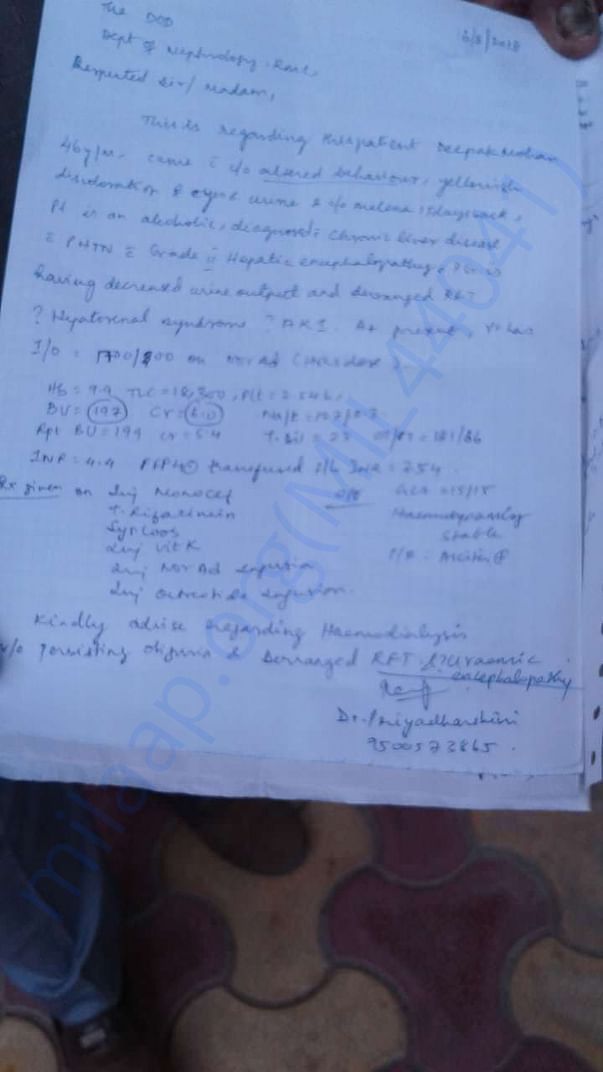 The DOD
Dept of Nephrology
6/8/2018
Respected Sir/Madam,
This is regarding the patient Deepak Mohan
46y/M. came c̄ c/o altered behaviour, yellowish
discoloration of eye & urine & c/o malena days back,
Pt is an alcoholic, diagnosed c̄ chronic liver disease
c̄ PHTN c̄ Grade II Hepatic encephalopathy. Pt is
having decreased urine output and deranged RFT
? Hepatorenal syndrome ? AKI. At present, Pt has
I/O = on NorAd
Hb = 9.9 TLC = 18,300, Plt =
BU = 197 Cr = 6.0 Na/K =
Rpt BU = 194 Cr = 5.4 T.Bil = 181/86
INR = 4.4 FFP transfused INR = 2.54.
Rx given on Inj Monocef
T. Rifaximin
Syp Loos
Inj Vit K
Inj NorAd infusion
Inj Octreotide infusion.
O/E GCS = 15/15
Haemodynamically
stable
P/A - Ascites ⊕
Kindly advise regarding Haemodialysis
v/o persisting oliguria & Deranged RFT & ? Uraemic
encephalopathy
Dr. Priyadharshini
9500573865.
milaap.org(MIL44041)